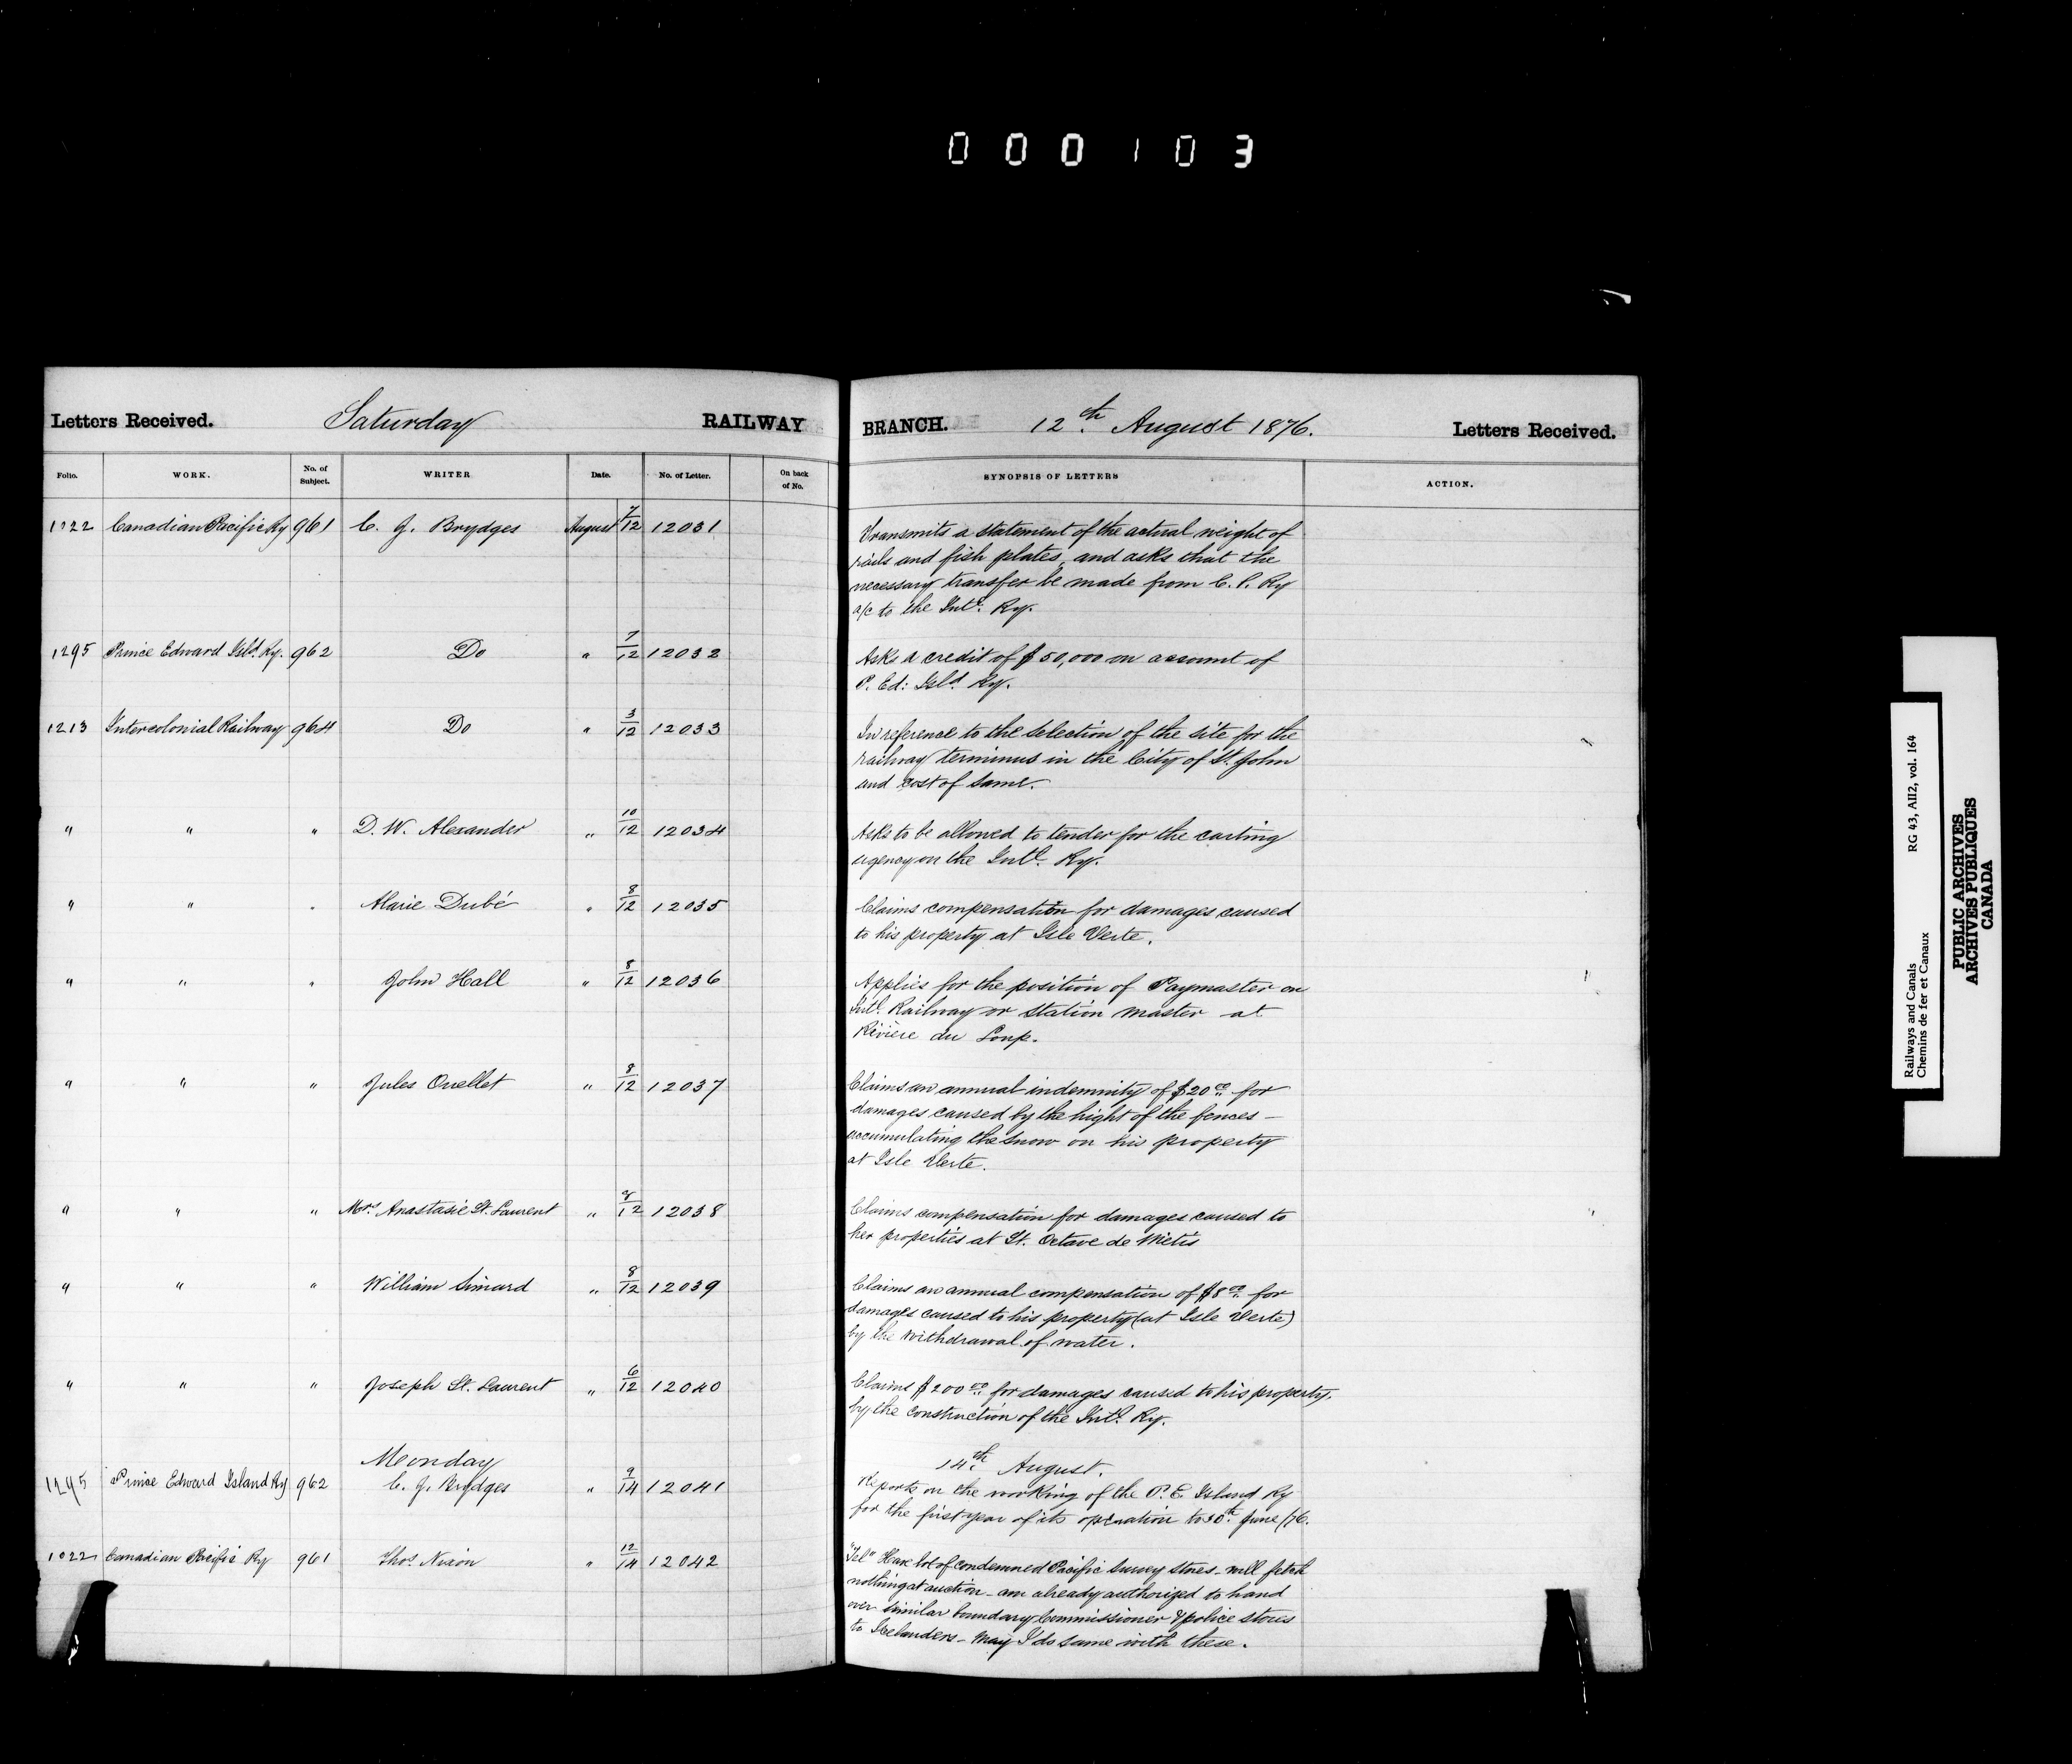 000103
Letters Received. Saturday RAILWAY BRANCH. 12th August 1876. Letters Received.
Folio. WORK. No. of Subject. WRITER Date. No. of Letter. On back of No. SYNOPSIS OF LETTERS ACTION.
1022 Canadian Pacific Ry 961 C. J. Brydges August 7/12 12031 Transmits a statement of the actual weight of
rails and fish plates, and asks that the
necessary transfer be made from C. P. Ry
a/c to the Intl. Ry.
1295 Prince Edward Isld. Ry. 962 Do " 7/12 12032 Asks a credit of $50,000 on account of
P. Ed: Isld Ry.
1213 Intercolonial Railway 964 Do " 3/12 12033 In reference to the selection of the site for the
railway terminus in the City of St. John
and cost of same.
" " " D. W. Alexander " 10/12 12034 Asks to be allowed to tender for the carting
agency on the Intl. Ry.
" " " Marie Dubé " 8/12 12035 Claims compensation for damages caused
to his property at Isle Verte.
" " " John Hall " 8/12 12036 Applies for the position of Paymaster on
Intl. Railway or station master at
Rivière du Loup.
" " " Jules Ouellet " 8/12 12037 Claims an annual indemnity of $20.00 for
damages caused by the hight of the fences –
accumulating the snow on his property
at Isle Verte.
" " " Mrs. Anastasie St. Laurent " 8/12 12038 Claims compensation for damages caused to
her properties at St. Octave de Metis
" " " William Simard " 8/12 12039 Claims an annual compensation of $8.00 for
damages caused to his property (at Isle Verte)
by the withdrawal of water.
" " " Joseph St. Laurent " 6/12 12040 Claims $200.00 for damages caused to his property,
by the construction of the Intl. Ry.
Monday 14th August.
1295 Prince Edward Island Ry 962 C. J. Brydges " 9/14 12041 Reports on the working of the P. E. Island Ry
for the first year of its operation to 30th June /76.
1022 Canadian Pacific Ry 961 Thos. Nixon " 12/14 12042 "Tel" Have lot of condemned Pacific Survey stores – will fetch
nothing at auction – am already authorized to hand
over similar boundary Commissioner & police stores
to Icelanders – may I do same with these.
Railways and Canals RG 43, AII2, vol. 164
Chemins de fer et Canaux
PUBLIC ARCHIVES
ARCHIVES PUBLIQUES
CANADA